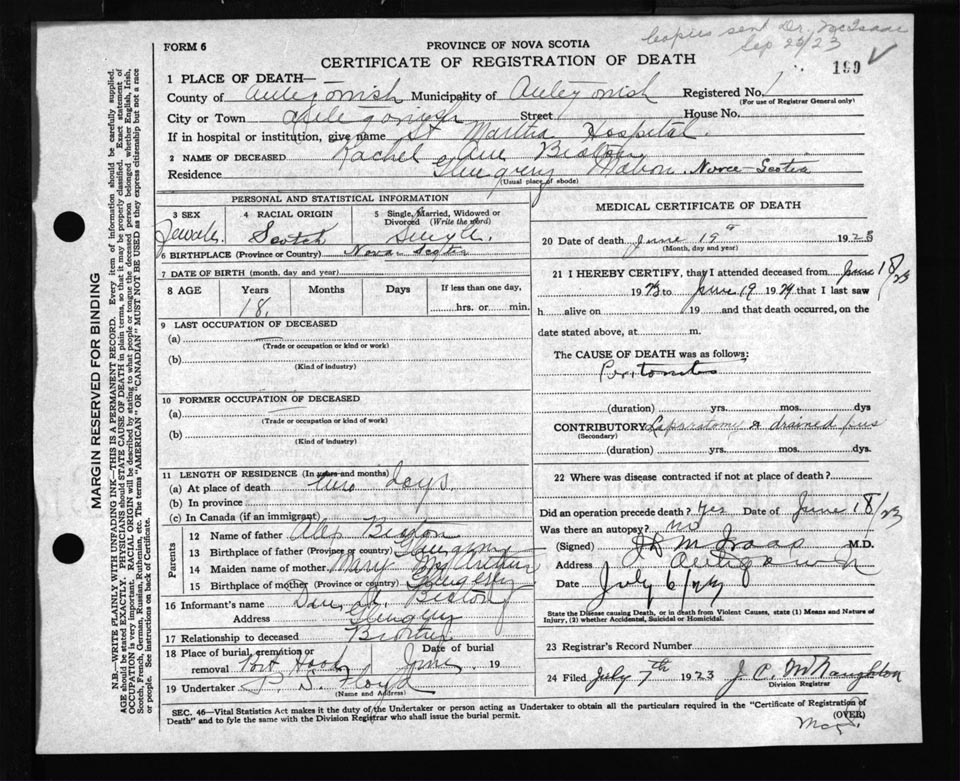 Copies sent Dr. McIsaac
Sep 25/23
FORM 6
PROVINCE OF NOVA SCOTIA
CERTIFICATE OF REGISTRATION OF DEATH
199
1 PLACE OF DEATH—
County of Antigonish Municipality of Antigonish Registered No. 1
(For use of Registrar General only)
City or Town Antigonish Street House No.
If in hospital or institution, give name St Martha Hospital
2 NAME OF DECEASED Rachel Ann Beaton
Residence Mabou Nova Scotia
(Usual place of abode)
PERSONAL AND STATISTICAL INFORMATION
3 SEX 4 RACIAL ORIGIN 5 Single, Married, Widowed or Divorced (Write the word)
Female. Scotch Single.
6 BIRTHPLACE (Province or Country) Nova Scotia
7 DATE OF BIRTH (month, day and year)
8 AGE Years Months Days If less than one day,
18. hrs. or min.
9 LAST OCCUPATION OF DECEASED
(a)
(Trade or occupation or kind or work)
(b)
(Kind of industry)
10 FORMER OCCUPATION OF DECEASED
(a)
(Trade or occupation or kind of work)
(b)
(Kind of industry)
11 LENGTH OF RESIDENCE (In years and months)
(a) At place of death two days
(b) In province
(c) In Canada (if an immigrant)
Parents
12 Name of father Beaton
13 Birthplace of father (Province or country)
14 Maiden name of mother Mary McArthur
15 Birthplace of mother (Province or country)
16 Informant's name Dan Beaton
Address
17 Relationship to deceased Brother
18 Place of burial, cremation or removal Port Hood Date of burial June 19
19 Undertaker P. S. Floyd
(Name and Address)
MEDICAL CERTIFICATE OF DEATH
20 Date of death June 19 1923
(Month, day and year)
21 I HEREBY CERTIFY, that I attended deceased from June 18/23
1923 to June 19 19 that I last saw
h alive on 19 and that death occurred, on
date stated above, at m.
The CAUSE OF DEATH was as follows:
Peritonitis
(duration) yrs. mos. dys
CONTRIBUTORY Laparotomy & drained pus
(Secondary)
(duration) yrs. mos. dys.
22 Where was disease contracted if not at place of death?
Did an operation precede death? Yes Date of June 18/23
Was there an autopsy? no
(Signed) M.D.
Address Antigonish
Date July 6/
State the Disease causing Death, or in death from Violent Causes, state (1) Means and Nature of
Injury, (2) whether Accidental, Suicidal or Homicidal.
23 Registrar's Record Number
24 Filed July 7th 1923 J. C. McNaughton
Division Registrar
SEC. 46—Vital Statistics Act makes it the duty of the Undertaker or person acting as Undertaker to obtain all the particulars required in the "Certificate of Registration of
Death" and to fyle the same with the Division Registrar who shall issue the burial permit.
(OVER)
MARGIN RESERVED FOR BINDING
N.B.—WRITE PLAINLY WITH UNFADING INK—THIS IS A PERMANENT RECORD. Every item of information should be carefully supplied.
AGE should be stated EXACTLY. PHYSICIANS should STATE CAUSE OF DEATH in plain terms, so that it may be properly classified. Exact statement of
OCCUPATION is very important. RACIAL ORIGIN will be described by stating to what people or tongue the deceased person belonged whether English, Irish,
Scotch, French, German, Russian, Ruthenian, etc. The terms "AMERICAN" or "CANADIAN" MUST NOT BE USED as they express citizenship but not a race
or people. See instructions on back of Certificate.